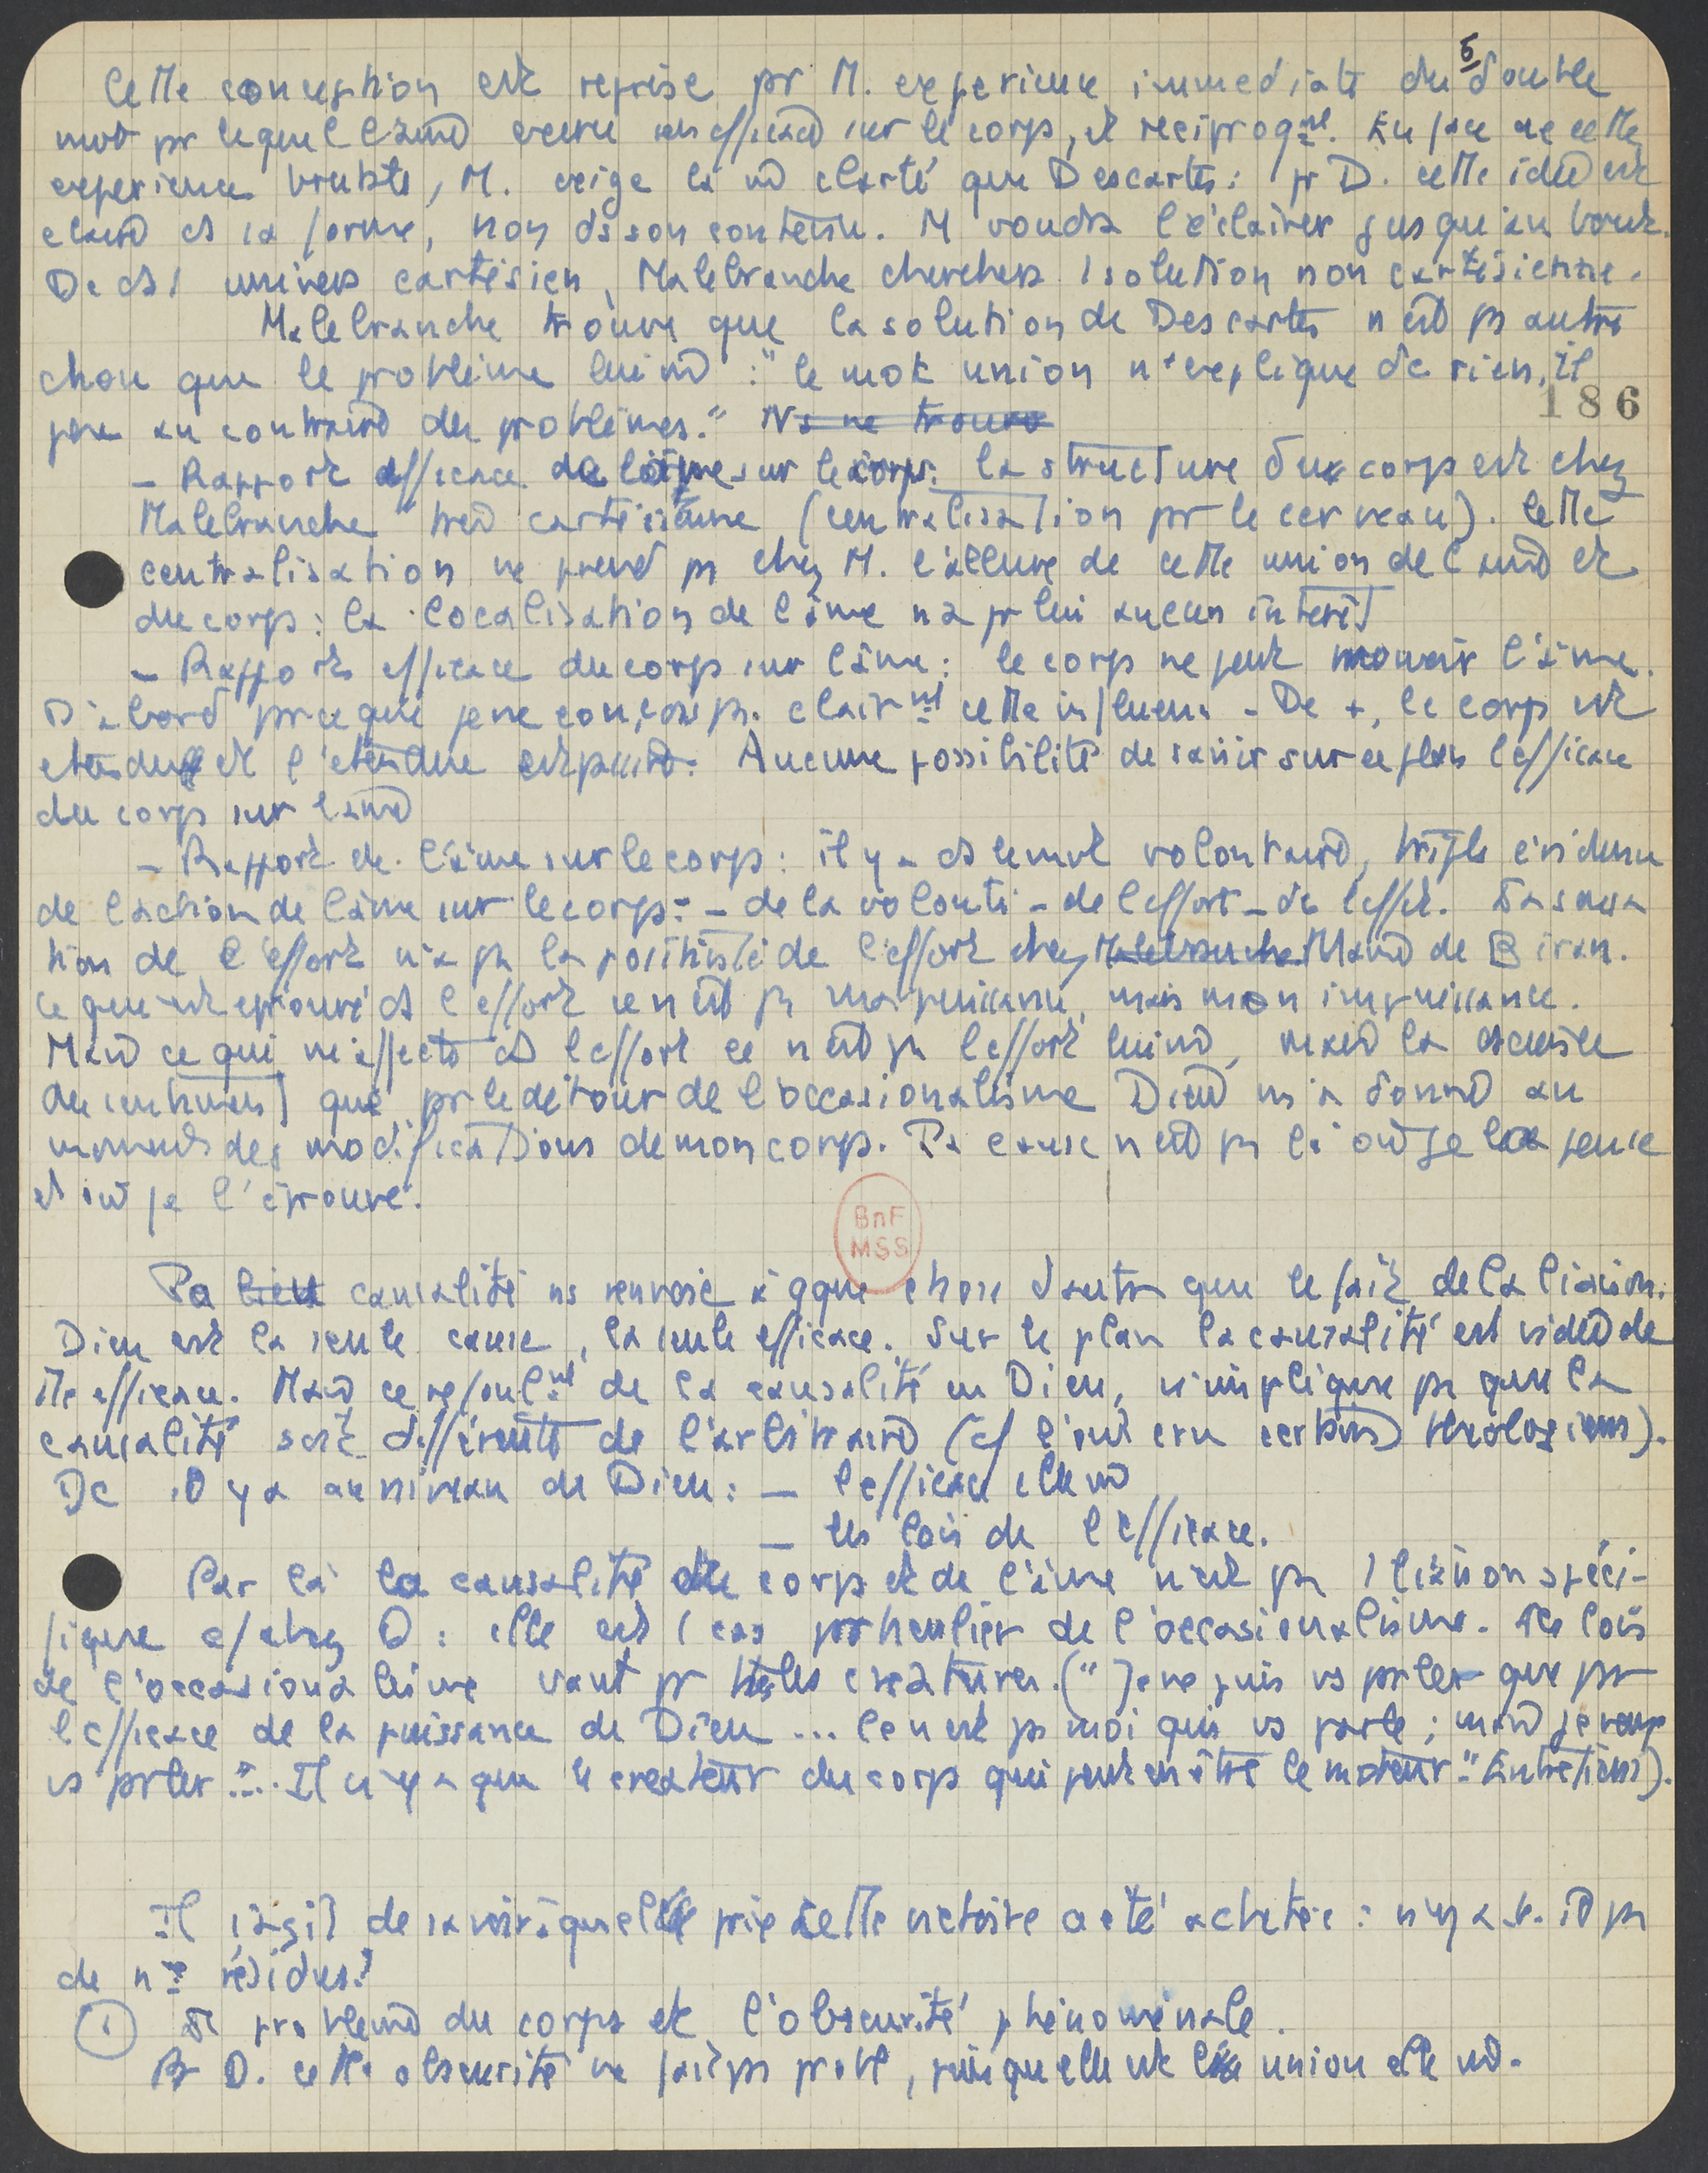 5
Cette conception est reprise pr M. experience immediate du double
mvt pr lequel l'âme exerce son efficace sur le corps, et reciproqmt. En face de cette
experience brute, M. exige la m clarté que Descartes : pr D. cette idée est
claire ds sa forme, non ds son contenu. M voudra l'éclairer jusqu'au bout.
Dc ds 1 univers cartésien, Malebranche cherchera 1 solution non cartésienne.
Malebranche trouve que la solution de Descartes n'est ps autre
chose que le problème lui m : "le mot union n'explique dc rien, il
186
pose au contraire des problèmes." Ns ne trouvo
- Rapport efficace de l'âme sur le corps : la structure du corps est chez
Malebranche très cartésienne (centralisation pr le cerveau). Cette
centralisation ne prend ps chez M. l'allure de cette union de l'âme et
du corps : la localisation de l'âme n'a pr lui aucun intérêt
- Rapports efficace du corps sur l'âme : le corps ne peut mouvoir l'âme.
D'abord prceque je ne conçois ps clairmt cette influence - De +, le corps est
étendu et l'étendue est passive. Aucune possibilité de saisir sur ce plan l'efficace
du corps sur l'âme
- Rapport de l'âme sur le corps : il y a ds le mvt volontaire, triple évidence
de l'action de l'âme sur le corps : - de la volonté - de l'effort - de l'effet. La sensa
tion de l'effort n'a ps la positivité de l'effort chez Malebranche Maine de Biran.
Ce qui est eprouvé ds l'effort ce n'est ps ma puissance, mais mon impuissance.
Mais ce qui m'affecte ds l'effort ce n'est ps l'effort lui m, mais la
du sentiment que pr le détour de l'occasionalisme Dieu m'a donné au
moment des modifications de mon corps. La cause n'est ps là où je la pense
et où je l'éprouve.
BnF
MSS
La lien causalité ns renvoie à qque chose d'autre que le fait de la liaison.
Dieu est la seule cause, la seule efficace. Sur le plan la causalité est vidée de
tte efficace. Mais ce refoulmt de la causalité en Dieu, n'implique ps que la
causalité soit différente de l'arbitraire (cf l'ont cru certains théologiens).
Dc il y a au niveau de Dieu : - l'efficace elle m
- les lois de l'efficace.
Par là la causalité du corps et de l'âme n'est ps 1 liaison spéci-
fique c/ chez D : elle est 1 cas particulier de l'occasionalisme. Les lois
de l'occasionalisme vaut pr ttes les créatures. ("Je ne puis vs parler que par
l'efficace de la puissance de Dieu ... Ce n'est ps moi qui vs parle ; mais je veux
vs parler"... Il n'y a que le createur du corps qui peut en être le moteur." Entretiens).
Il s'agit de savoir à quel prix cette victoire a été achetée : n'y a-t-il ps
de nx résidus ?
1 Le problème du corps et l'obscurité phénoménale.
Pr D. cette obscurité ne fait ps probl, puisqu'elle est l'union elle m.